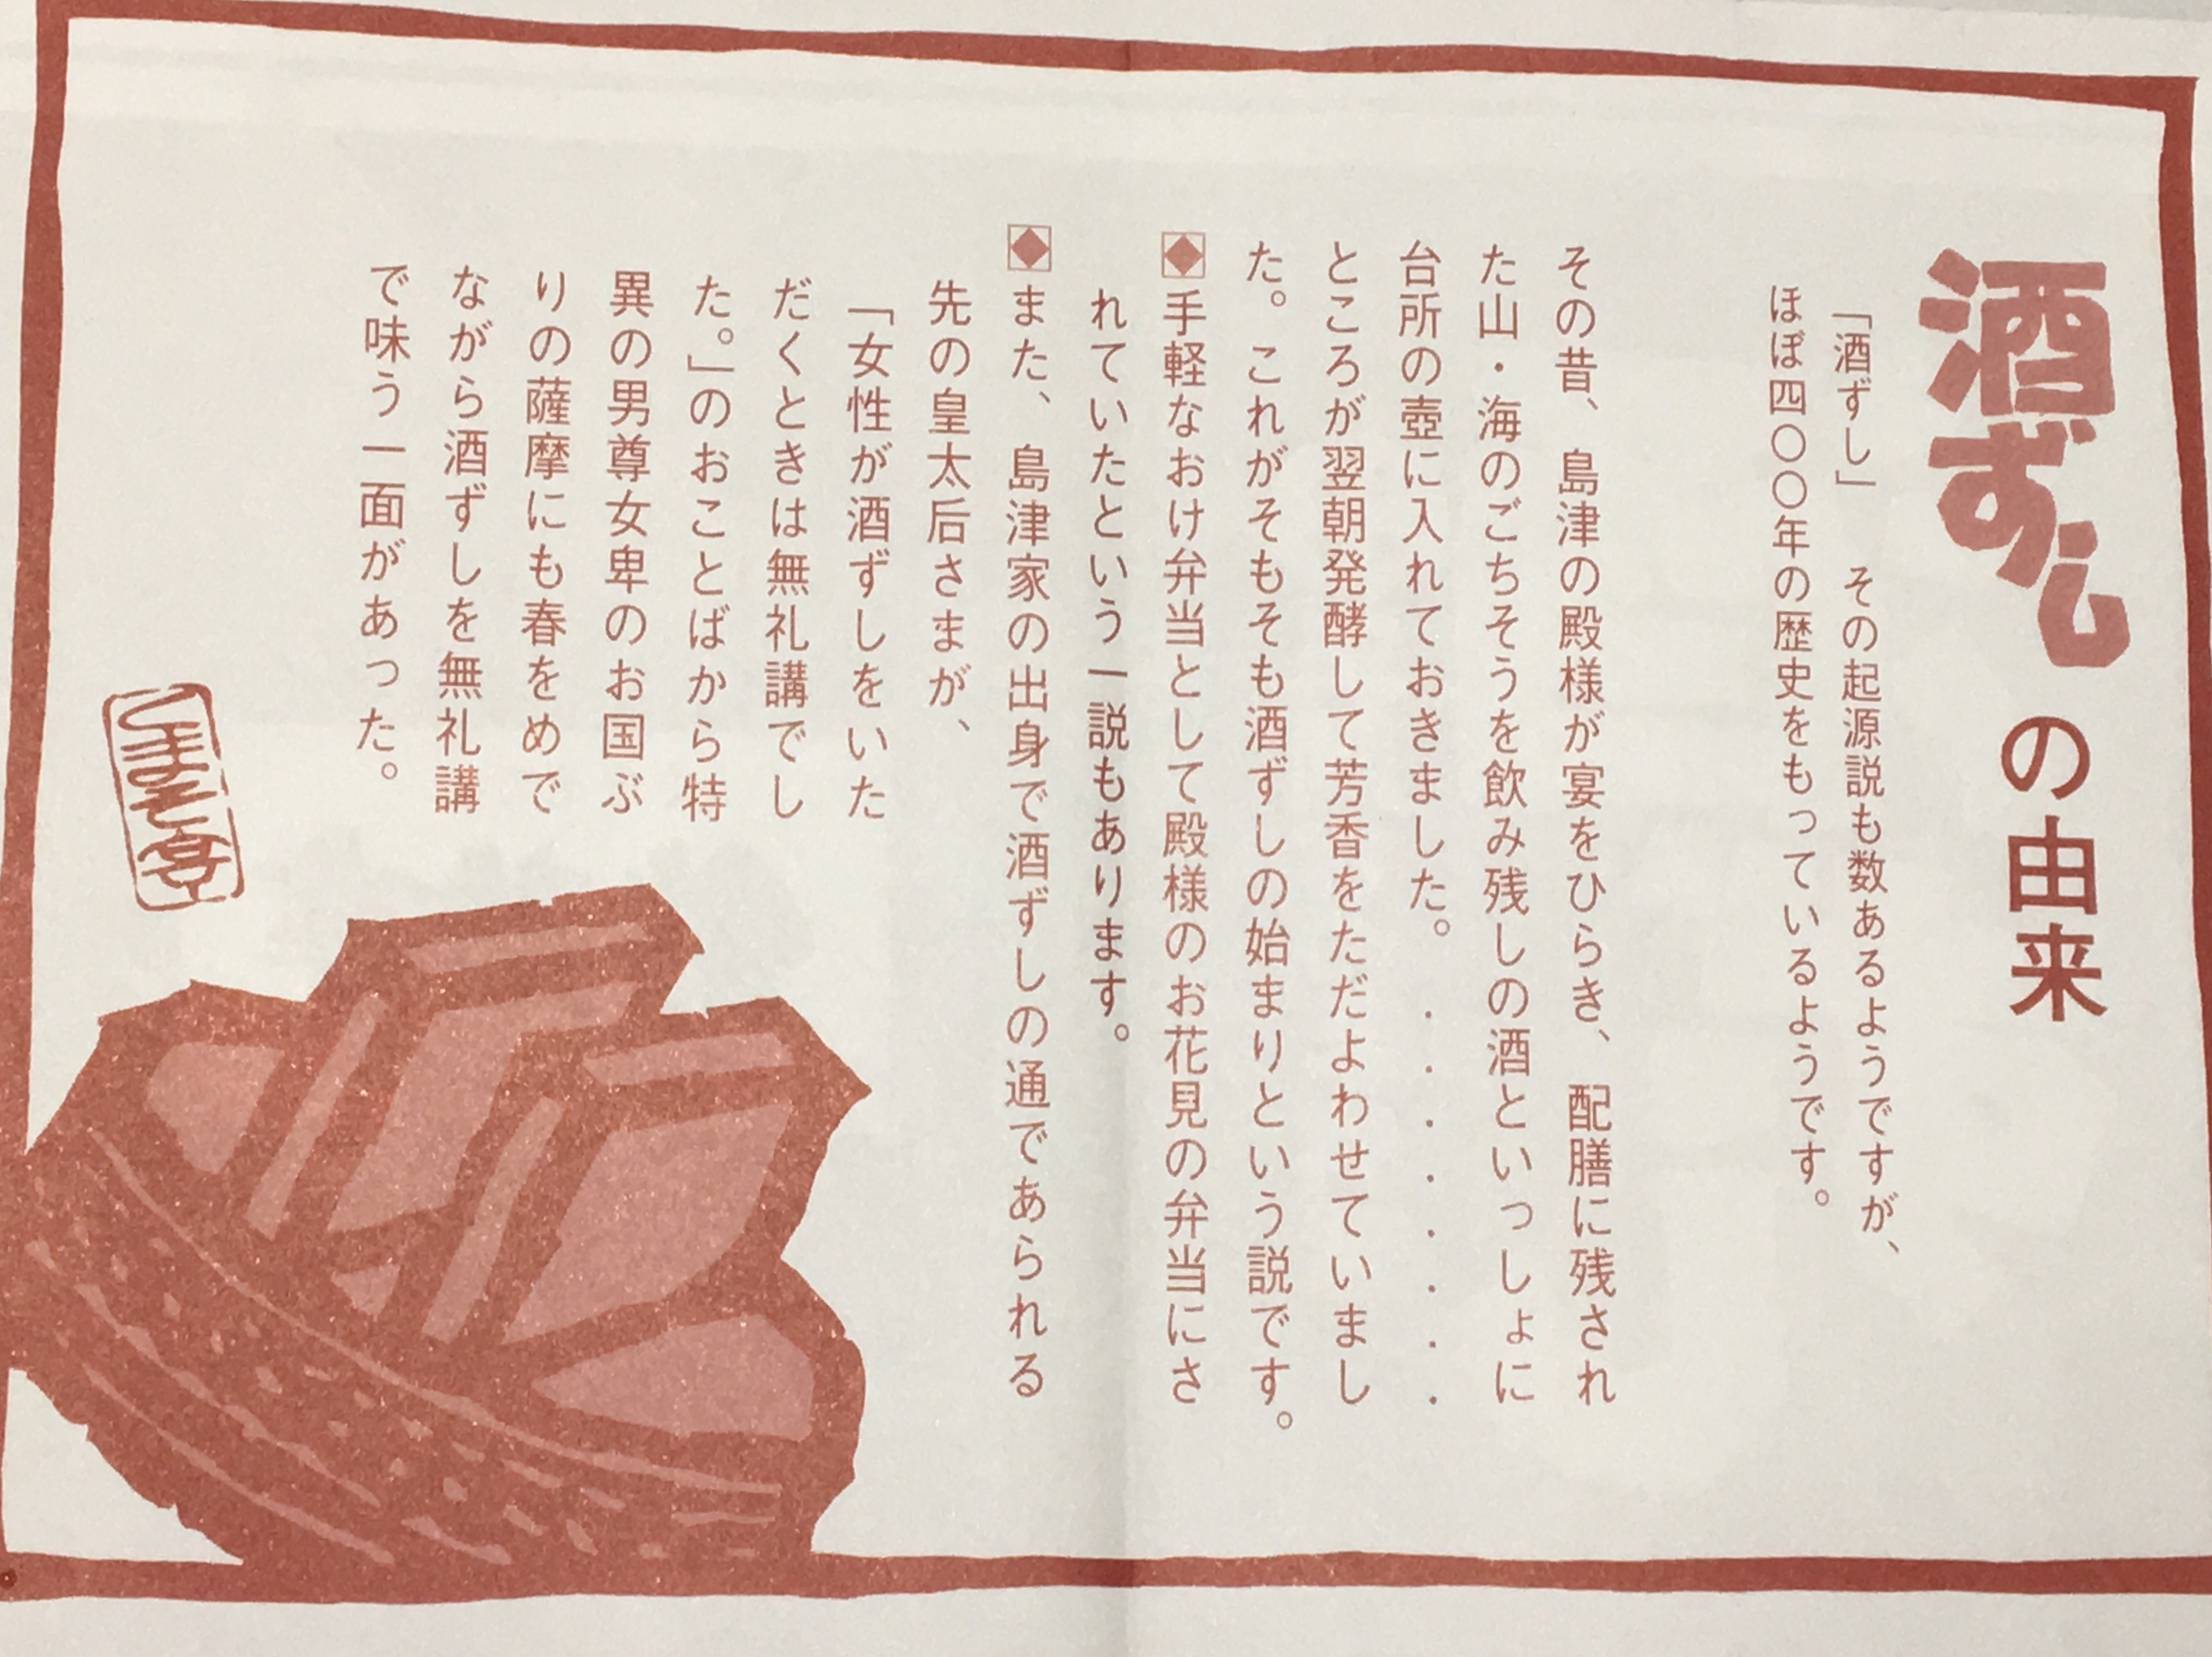 酒ずしの由来
「酒ずし」 その起源説も数あるようですが、
ほぼ四〇〇年の歴史をもっているようです。
その昔、島津の殿様が宴をひらき、配膳に残され
た山・海のごちそうを飲み残しの酒といっしょに
台所の壺に入れておきました。........
ところが翌朝発酵して芳香をただよわせていまし
た。これがそもそも酒ずしの始まりという説です。
手軽なおけ弁当として殿様のお花見の弁当にさ
れていたという一説もあります。
また、島津家の出身で酒ずしの通であられる
先の皇太后さまが、
「女性が酒ずしをいた
だくときは無礼講でし
た。」のおことばから特
異の男尊女卑のお国ぶ
りの薩摩にも春をめで
ながら酒ずしを無礼講
で味う一面があった。
しまそ亭